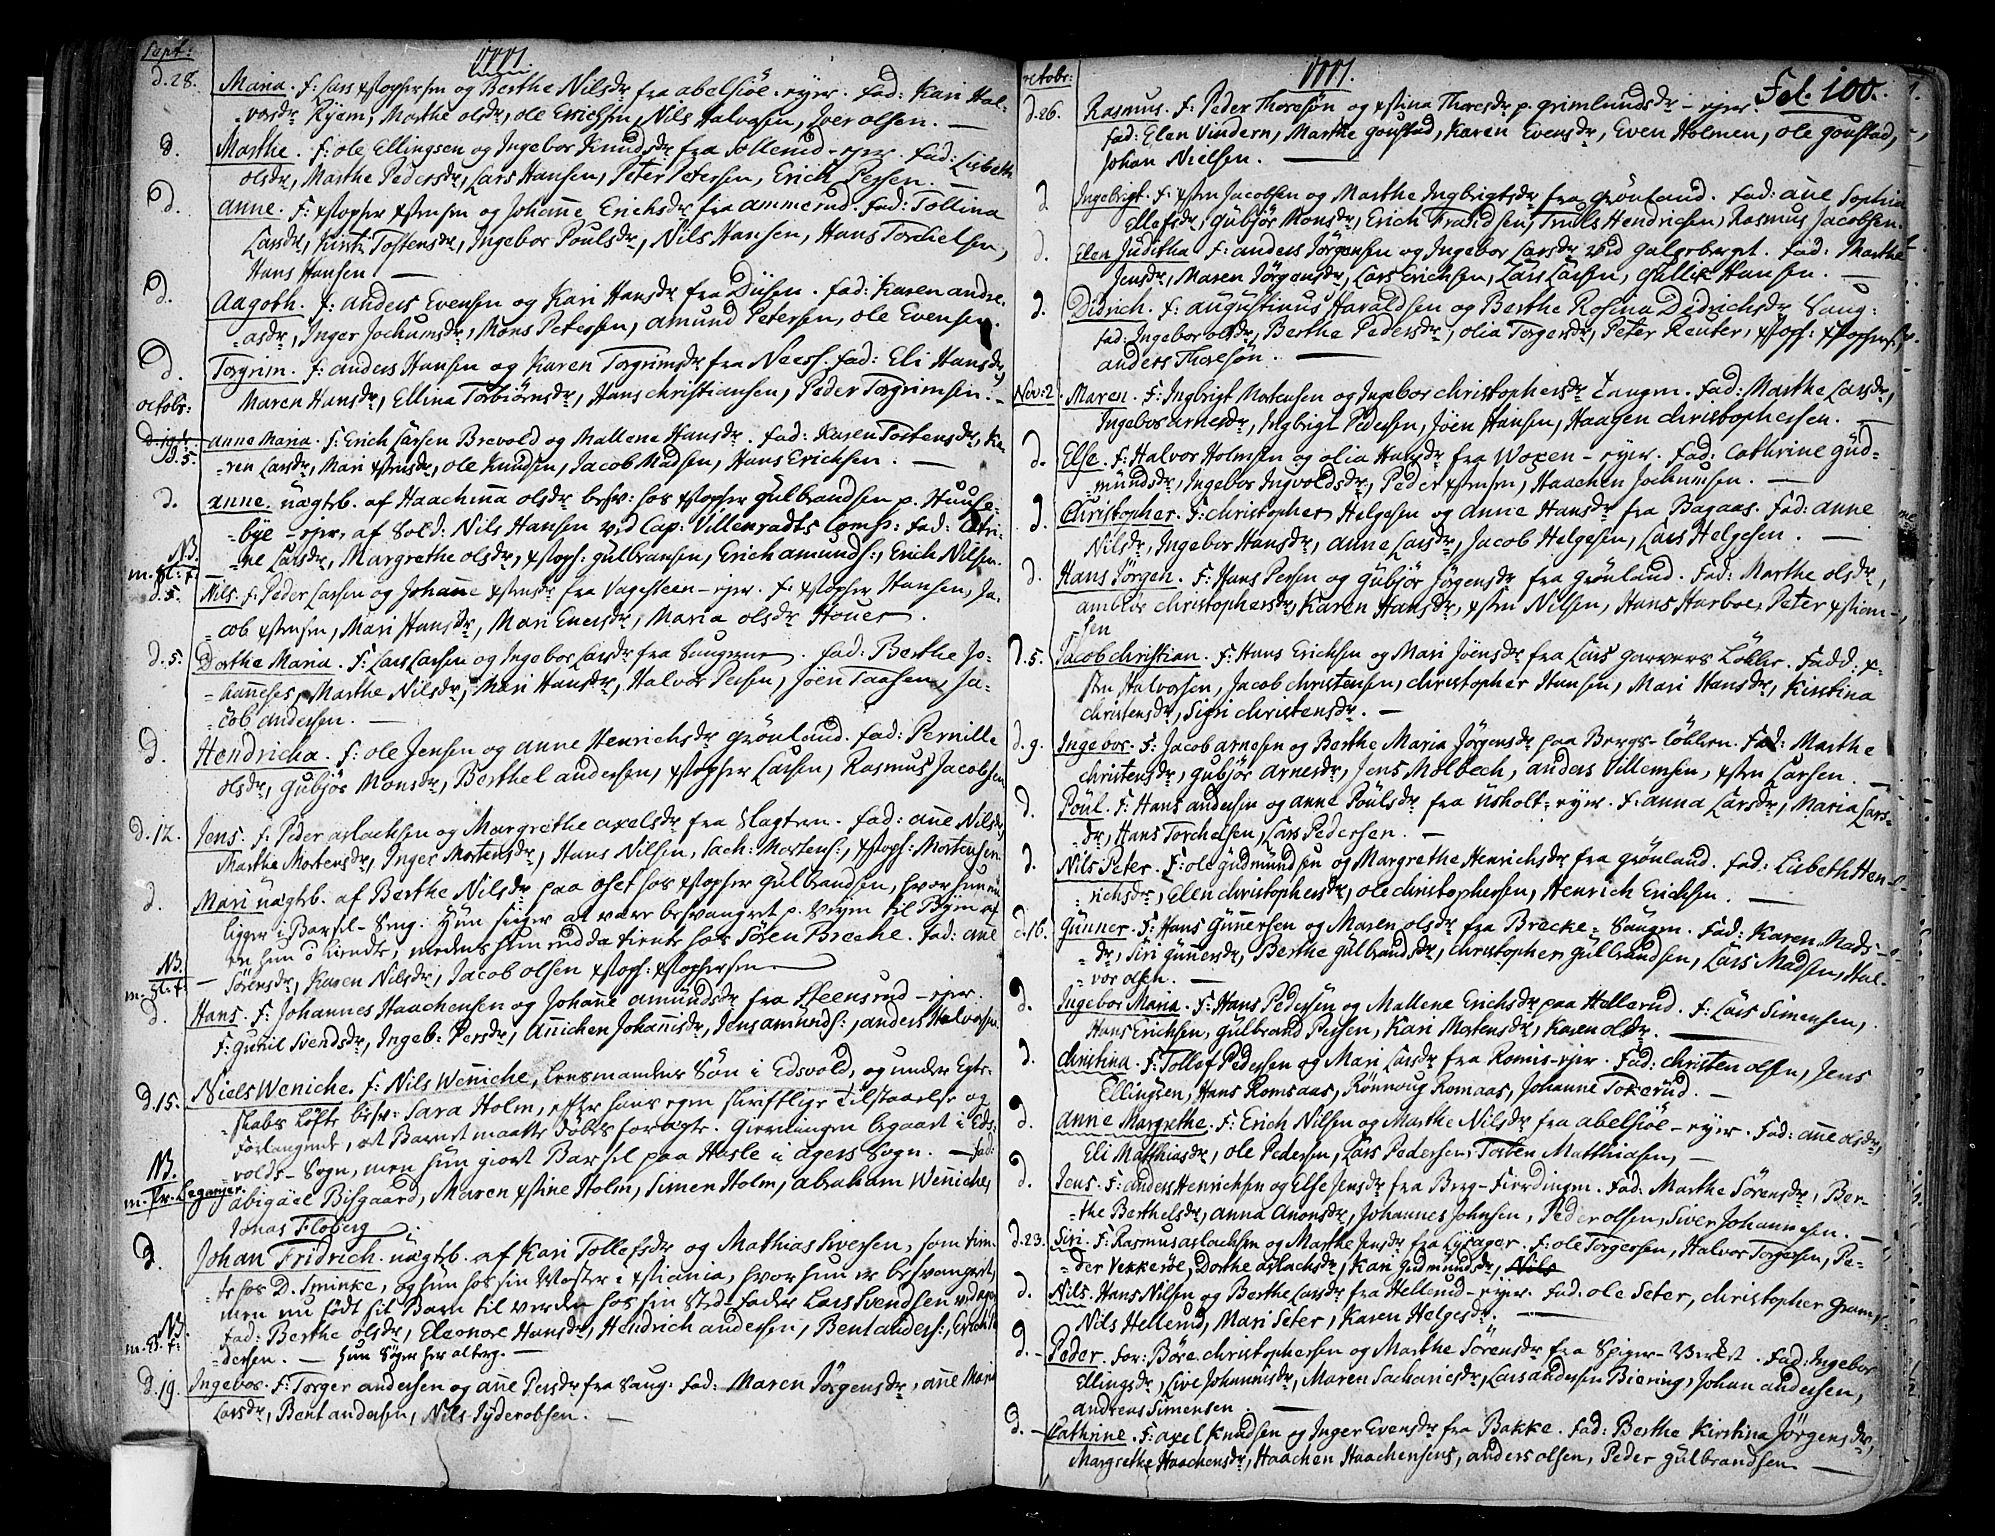 Sept: 1777.
d. 28. Maria. F: Lars xstophersen og Berthe Nilsdr fra abelsiöe-ejer. fad: Kari Hal-
vorsdr Ryem, Marthe olsdr, ole Erichsen, Nils Halvorsen, Iver olsen. —
d. Marthe. F: ole Ellingsen og Ingebor Knudsdr fra Sollerud-ejer. fad: Lisbeth
olsdr, Marthe Pedersdr, Lars Hansen, Peter Petersen, Erich Persen. —
d. anne. F: xstopher xstensen og Johanne Erichsdr fra ammerud. fad: Tollina
Larsdr, Tostensdr, Ingebor Poulsdr, Nils Hansen, Hans Torchelsen,
Hans Hansen —
d. Aagoth. F: anders Evensen og Kari Hansdr fra Diisen. fad: Karen andre-
asdr, Inger Jochumsdr, Mons Petersen, amund Petersen, ole Evensen.
d. Torgrim. F: anders Hansen og Karen Torgrimsdr fra Neess. fad: Eli Hansdr,
Maren Hansdr, Ellina Torbiörnsdr, Hans christiansen, Peder Torgrimsen. —
octobr:
d. 5. anne Maria. F: Erich Larsen Brevold og Mallene Hansdr. fad: Karen Tostensdr, Ka-
ren Larsdr, Mari xstensdr, ole Knudsen, Jacob Madsen, Hans Erichsen. —
d. anne. uægtb. af Haachina olsdr besv: hos xstopher Gulbrandsen p. Huuse-
bye-ejer, af Sold: Nils Hansen v.d Cap: Villenradts Comp: fad: Catri-
ne Larsdr, Margrethe olsdr, xstoph: gulbransen, Erich amunds:, Erich Nilsen.
NB.
m. Sl: f.
d. 5. Nils. F: Peder Larsen og Johanne xstensdr fra Vagesteen-ejer. f: xstopher Hansen, Ja-
cob xstensen, Mari Hansdr, Mari Enersdr, Maria olsdr Houer.
d. 5. Dorthe Maria. F: Lars Larsen og Ingebor Larsdr fra Saugene. fad: Berthe Jo-
hanneses, Marthe Nilsdr, Mari Hansdr, Halvor Persen, Jöen Taasen, Ja-
cob andersen. —
d. Hendricha. F: ole Jensen og anne Henrichsdr Grönland. fad: Pernille
olsdr, Gubjör Monsdr, Berthel andersen, xstopher Larsen, Rasmus Jacobsen
d. 12. Jens. F: Peder aslachsen og Margrethe axelsdr fra Slagtern. fad: ane Nilsdr,
Marthe Mortensdr, Inger Mortensdr, Hans Nilsen, Sach: Mortens:, xstoph: Mortensen.
d. Mari uægtb. af Berthe Nilsdr paa oset hos xstopher Gulbrandsen, hvor hun nu
ligger i Barsel-Seng. Hun siger at være besvangret p. Vejen til Byen af
en hun ei kiendte, medens hun endda tiente hos Sören Breche. fad: ane
Sörensdr, Karen Nilsdr, Jacob olsen xstoph: xstophersen
NB.
m. Sl: f.
d. Hans. F: Johannes Haachensen og Johane amundsdr fra Steensrud-ejer.
F: guril Svendsdr, Ingeb: Persdr, Anichen Johannisdr, Jens amunds:, anders Halvorsen.
d. 15. Niels Weniche. F: Nils Weniche, Lensmandens Sön i Edsvold, og under Egte-
skabs Löfte besv: Sara Holm, efter hans egen skriftlige Tilstaaelse og
Forlangende, at Barnet maatte Döbes foregte. Gierningen begaaet i Eds-
volds-Sogn, men hun giort Barsel paa Hasle i agers Sogn. — fad:
abigael Bisgaard, Maren xstine Holm, Simen Holm, abraham Weniche,
Jonas Floberg.
NB.
m. Pr. Leganger.
d. Johan Fridrich. uægtb. af Kari Tollefsdr og Mathias Iversen, som tien-
te hos D. Sminke, og hun hos sin Moster i xstiania, hvor hun er besvangret,
men nu födt sit Barn til verden hos sin Sted-fader Lars Svendsen
fad: Berthe olsdr, Eleonore Hansdr, Hendrich andersen, Bent anders:, Erich
dersen. — hun Söger her alterg. —
NB.
d. 19. Ingebor. F: Torger andersen og ane Persdr fra Saug. fad: Maren Jörgensdr, ane Maria
Larsdr, Bent andersen, Nils Jyderobsen. —
octobr: 1777. Fol. 100.
d. 26. Rasmus. F: Peder Thoresön og xstina Thoresdr p. grimlundsdr-ejer.
fad: Elen Vindern, Marthe goustad, Karen Evensdr, Even Holmen, ole goustad,
Johan Nielsen. —
d. Ingebrigt. F: xsten Jacobsen og Marthe Ingbrigtsdr fra Grönland. fad: ane Sophia
Ellefsdr, Gubjör Monsdr, Erich Frandsen, Truls Hendrichsen, Rasmus Jacobsen.
d. Elen Juditha F: anders Jörgensen og Ingebor Larsdr ved galgeberget. fad: Marthe
Jensdr, Maren Jörgensdr, Lars Erichsen, Lars Larsen, Gullik Hansen. —
d. Didrich. F: augustinus Haraldsen og Berthe Rosina Didrichsdr Saug:
fad: Ingebor olsdr, Berthe Pedersdr, olia Torgersdr, Peter Reuter, xstoph: xstophersen,
anders Thoresön. —
Nov: 2. Maren. F: Ingbrigt Mortensen og Ingebor christophersdr Tangen. fad: Marthe Larsdr,
Ingebor arnesdr, Ingbrigt Pedersen, Jöen Hansen, Haagen christophersen. —
d. Else. F: Halvor Holmsen og olia Hansdr fra Woxen-ejer. fad: Cathrine gud-
mundsdr, Ingebor Ingvoldsdr, Peder xstensen, Haachen Jochumsen. —
d. Christopher. F: christopher Helgesen og anne Hansdr fra Bagaas. fad: anne
Nilsdr, Ingebor Hansdr, anne Larsdr, Jacob Helgesen, Lars Helgesen. —
d. Hans Jörgen. F: Hans Persen og Gubjör Jörgensdr fra grönland. fad: Marthe olsdr,
amblör christophersdr, Karen Hansdr, xsten Nilsen, Hans Harboe, Peter xstian-
sen
d. 5. Jacob christian. F: Hans Erichsen og Mari Jöensdr fra Lars garvers Lökke. Fadd: x-
sten Halvorsen, Jacob christensen, christopher Hansen, Mari Hansdr, Kirstina
christensdr, Sigri christensdr. —
d. 9. Ingebor. F: Jacob arnesen og Berthe Maria Jörgensdr paa Bergs-Lökken. Fad: Marthe
christensdr, gubjör arnesdr, Jens Molbech, anders Villemsen, xsten Larsen. —
d. Poul. F: Hans andersen og anne Poulsdr fra Usholt-ejer. F: anna Larsdr, Maria Lars-
dr, Hans Torchelsen, Lars Pedersen. —
d. Nils Peter. F: ole gudmundsen og Margrethe Henrichsdr fra grönland. fad: Lisbeth Hen-
richsdr, Ellen christophersdr, ole christophersen, Henrich Erichsen. —
d. 16. Gunner. F: Hans Gunersen og Maren olsdr fra Brecke-Saugen. Fad: Karen Mads-
dr, Siri gunersdr, Berthe Gulbrandsdr, christopher gulbrandsen, Lars Madsen, Hal-
vor olsen. —
d. Ingebor Maria. F: Hans Pedersen og Mallene Erichsdr paa Hellerud. F: Lars Simensen,
Hans Erichsen, Gulbrand Persen, Kari Mortensdr, Karen olsdr. —
d. christina. F: Tollef Pedersen og Mari Larsdr fra Romis-ejer. Fad: christen olsen, Jens
Ellingsen, Hans Romsaas, Rönnoug Romaas, Johanne Tokerud. —
d. anne Margrethe. F: Erich Nilsen og Marthe Nilsdr fra abelsiöe-ejer. Fad: ane olsdr,
Eli Matthiasdr, ole Pedersen, Lars Pedersen, Torben Matthiasen, —
d. Jens. F: anders Henrichsen og Else Jensdr fra Berg-Fierdingen. Fad: Marthe Sörensdr, Ber-
the Berthelsdr, anna Anonsdr, Johannes Johnsen, Peder olsen, Siver Johannesen. —
d. 23. Siri. F: Rasmus aslachsen og Marthe Jensdr fra Lysager. F: ole Torgersen, Halvor Torgersen, Pe-
der Vekkerøe, Dorthe aslachsdr, Kari Gudmundsdr, Nils
d. Nils. Hans Nilsen og Berthe Larsdr fra Hellerud-ejer. fad: ole Seter, christopher
Nils Hellerud, Mari Seter, Karen Helgesdr. —
d. Peder. For: Böre christophersen og Marthe Sörensdr fra Spiger-Verket. Fad: Ingebor
Ellingsdr, Live Johannisdr, Maren Sachariesdr, Lars andersen Biering, Johan andersen,
andreas Simensen. —
d. Cathrine. F: axel Knudsen og Inger Evensdr fra Bakke. Fad: Berthe Kirstina Jörgensdr,
Margrethe Haachensdr, Haachen Haachensens, anders olsen, Peder Gulbrandsen —